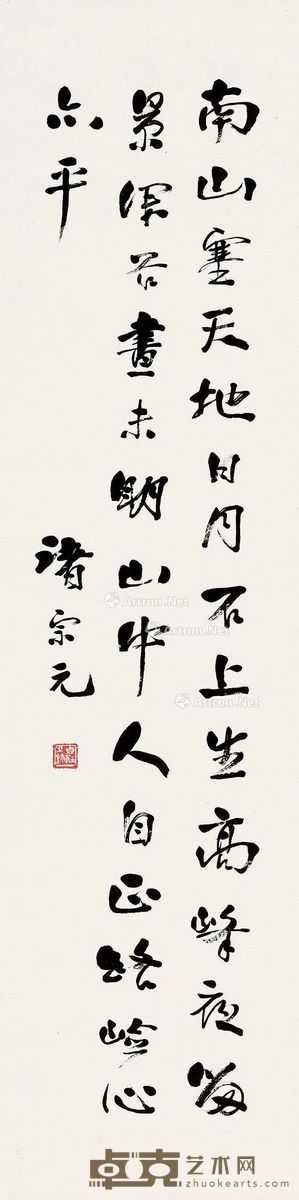 南山塞天地日月石上生高峰夜留
景深谷晝未明山中人自正路嶮心
亦平
諸宗元
Artron.Net
Artron.Net
Artron.Net
卓克艺术网
zhuokearts.com